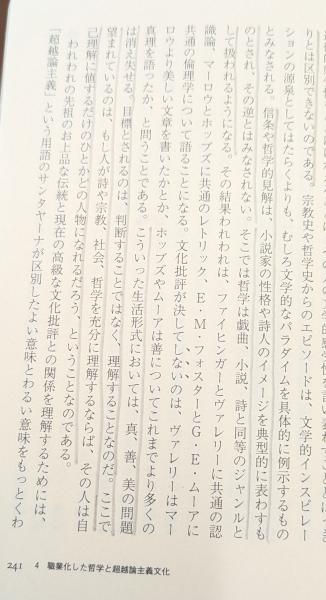 りとは区別できないのである。宗教史や哲学史からのエピソードは、文学的インスピレー
ションの源泉としてはたらくよりも、むしろ文学的なパラダイムを具体的に例示するもの
とみなされる。信条や哲学的見解は、小説家の性格や詩人のイメージを典型的に表わすも
のとされ、その逆とはみなされない。そこでは哲学は戯曲、小説、詩と同等のジャンルと
して扱われるようになる。その結果われわれは、ファイヒンガーとヴァレリーに共通の認
識論、マーロウとホッブズに共通のレトリック、E・M・フォスターとG・E・ムーアに
共通の倫理学について語ることになる。文化批評が決してしないのは、ヴァレリーはマー
ロウより美しい文章を書いたかとか、ホッブズやムーアは善についてこれまでより多くの
真理を語ったか、と問うことである。こういった生活形式においては、真、善、美の問題
は消え失せる。目標とされるのは、判断することではなく、理解することなのだ。ここで
望まれているのは、もし人が詩や宗教、社会、哲学を充分に理解するならば、その人は自
己理解に値するだけのひとかどの人物になれるだろう、ということなのである。
われわれの先祖のお上品な伝統と現在の高級な文化批評との関係を理解するためには、
「超越論主義」という用語のサンタヤーナが区別したよい意味とわるい意味をもっとくわ
241 4 職業化した哲学と超越論主義文化